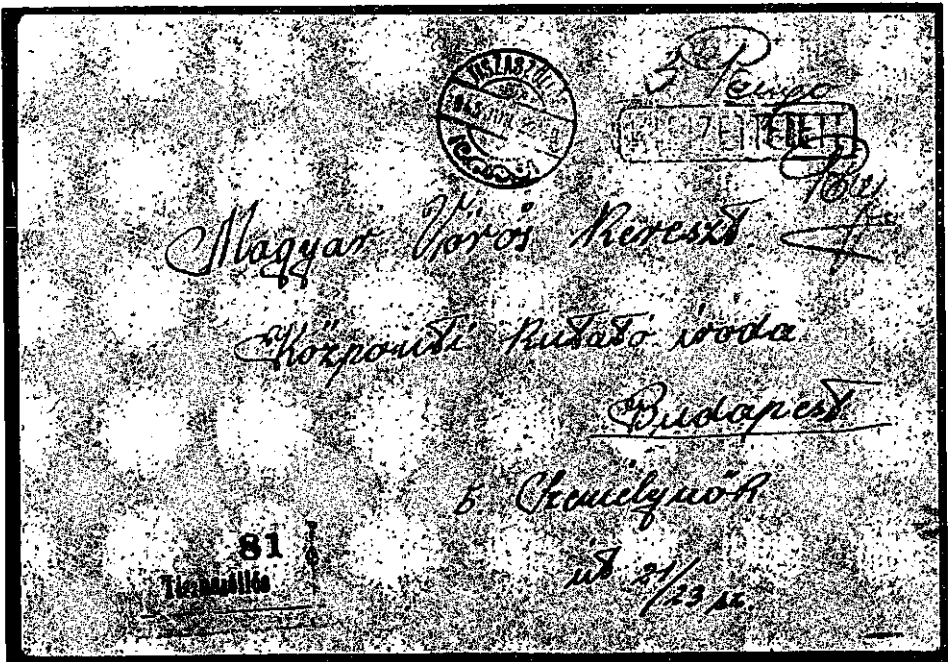 3 Pengő
Magyar Vörös Kereszt.
Központi Kutató iroda
Budapest
5. Személynök
út 21/23 sz.
81
Tiszaszőllős